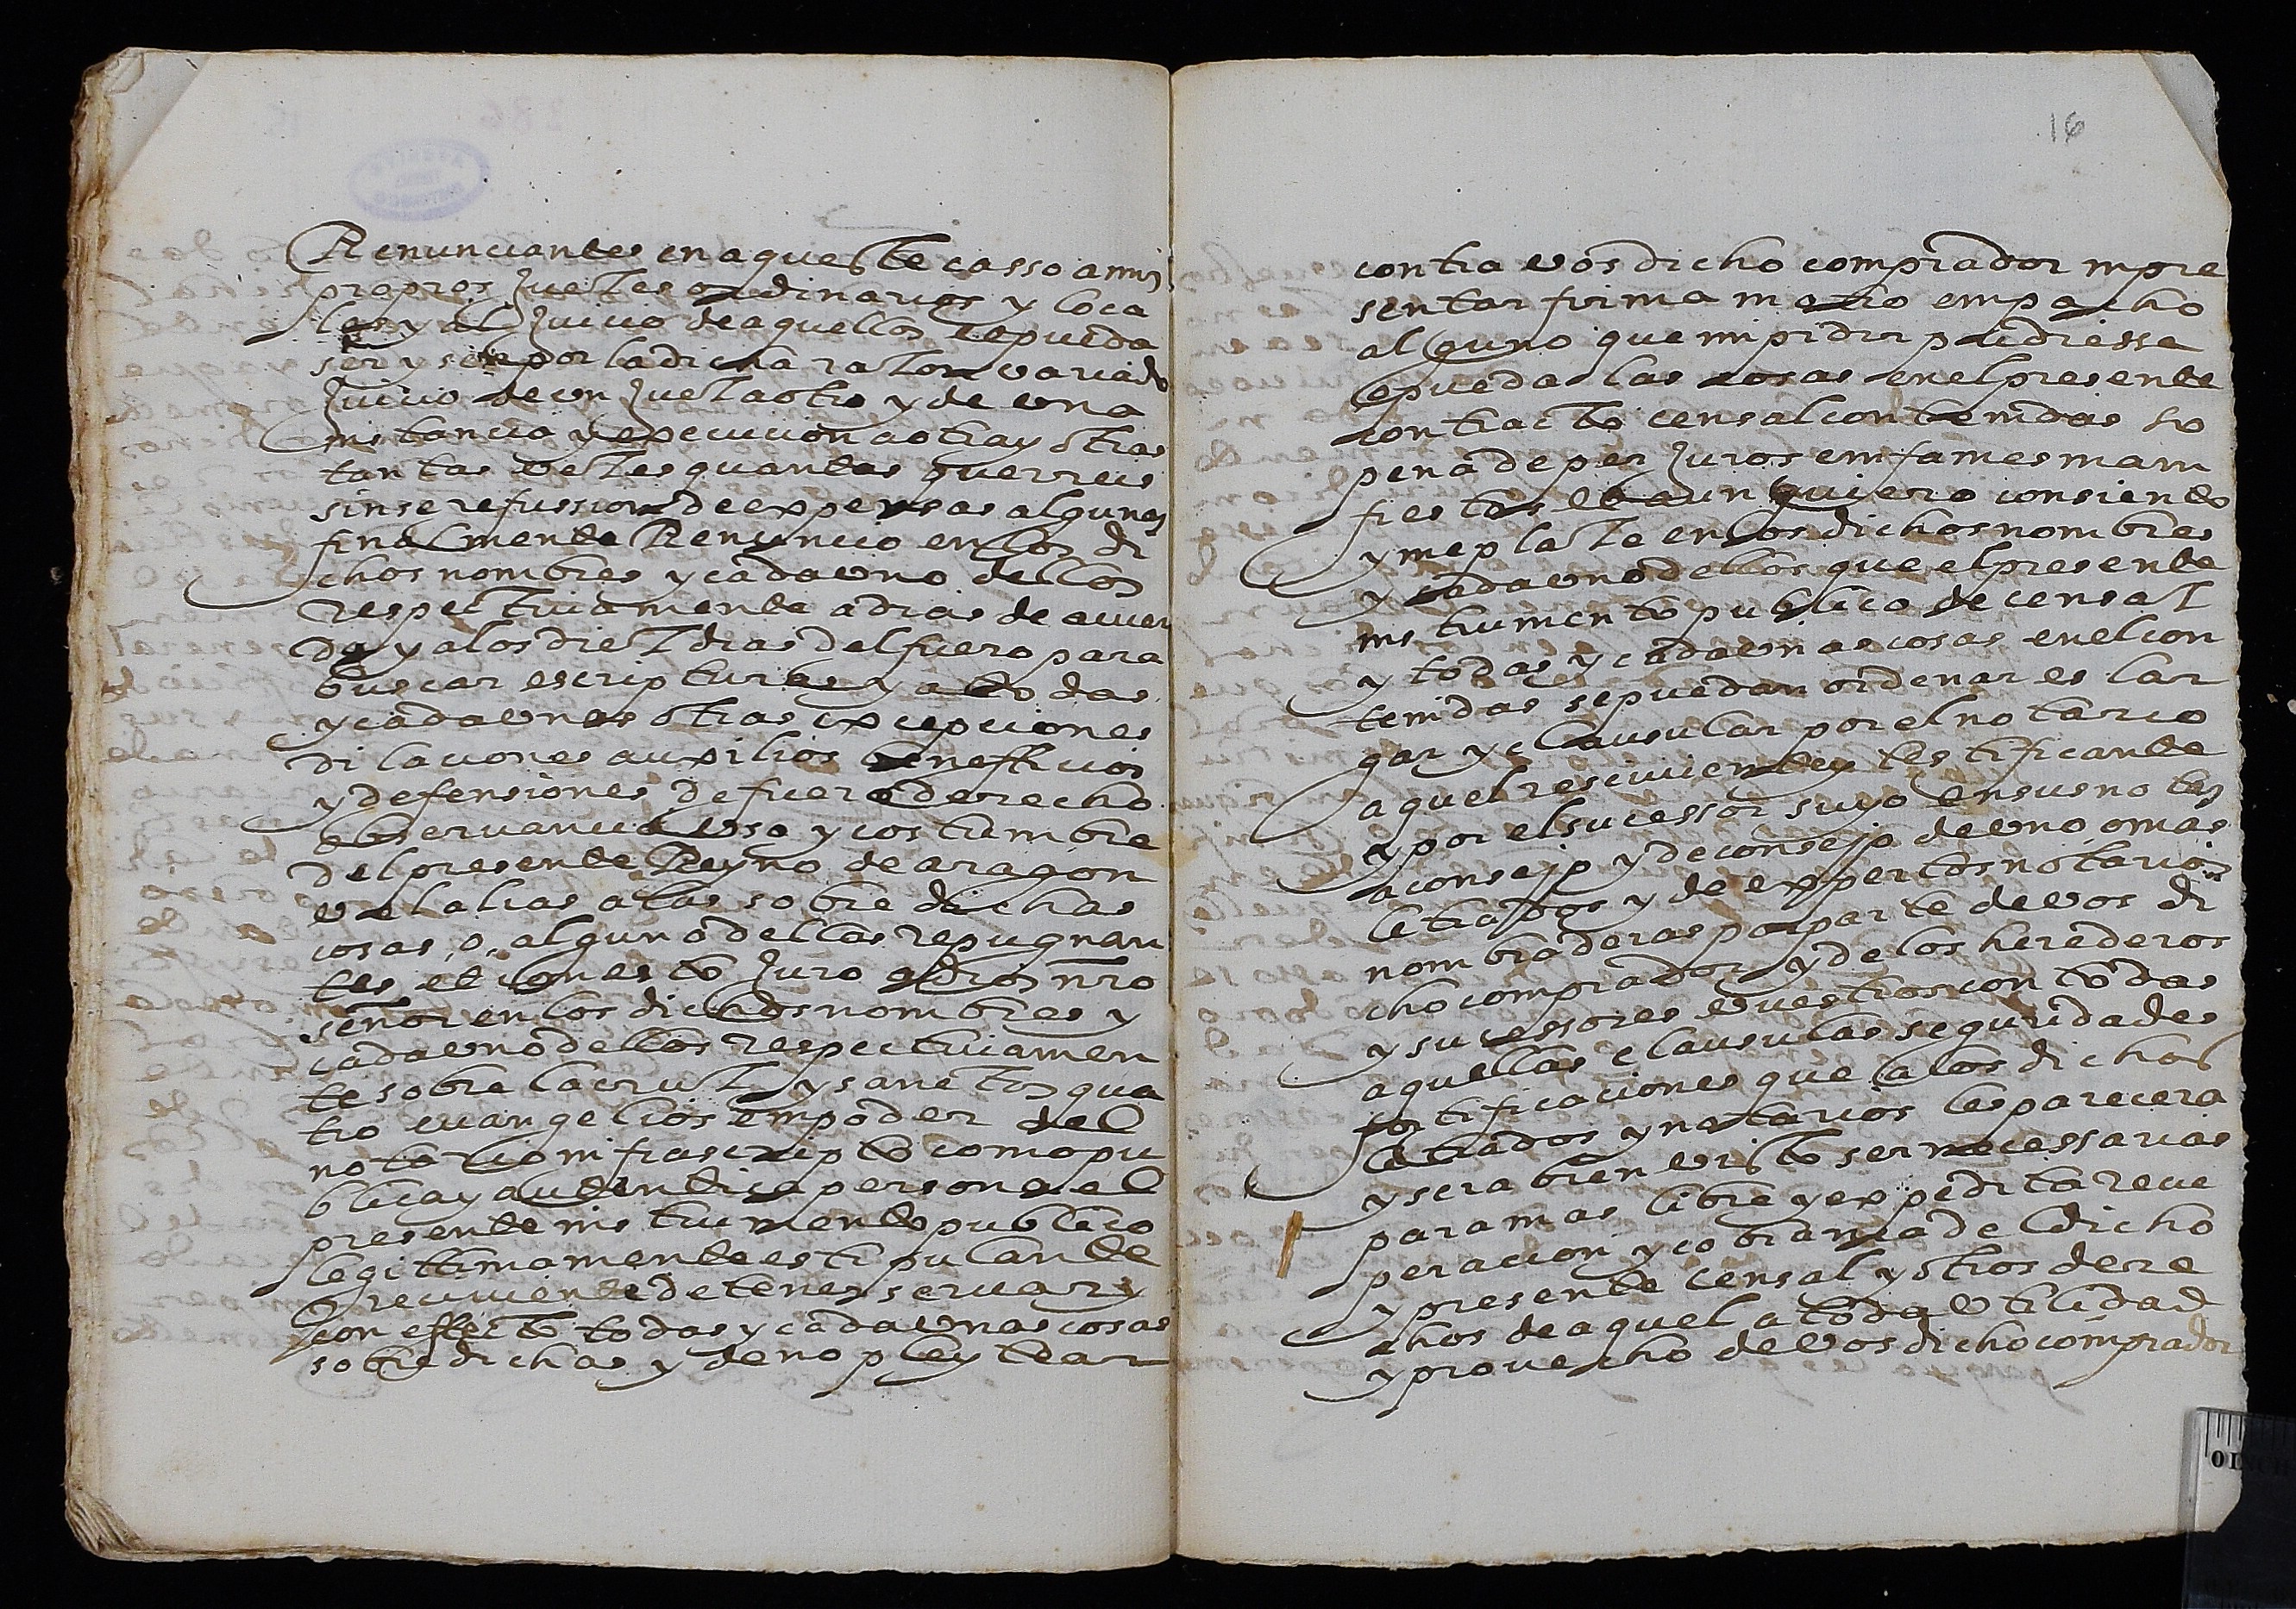 Renunciantes en aqueste casso a mis
propios Juezes ordinarios y loca
les y al Juicio de aquellos e pueda
ser y sea por la dicha razon variado
Juicio de un Juez a otro y de una
instancia y execucion a otra y otras
tantas vezes quantas querreis
sins refussion de expensas algunas
finalmente Renuncio en los di
chos nombres y cada uno dellos
respectivamente a dias de acuer
do y a los diez dias del fuero para
buscar escripturas y a todas
y cada unas otras excepciones
dilaciones auxilios beneficios
y defensiones de fuero derecho
observancia uso y costumbre
del presente Reyno de aragon
vel alias a las sobre dichas
cosas, o, alguna dellas repugnan
tes et con esto Juro a dios nro
señor en los dichos nombres y
cada uno dellos respectivamen
te sobre la cruz y sanctos qua
tro evangelios em poder del
notario infrascripto como pu
blica y autentica persona el
presente instrumento publico
legitimamente estipulante
y reciviente de tener servar y
con effecto todas y cada unas cosas
sobredichas y de no pleytear
16
contra vos dicho comprador ni pre
sentar firma ni otro empacho
alguno que impidir pudiesse
e pueda las cosas en el presente
contracto censal contenidas so
pena de perJuros e infames mani
fiestos et aun quiero consiento
y me plaze en los dichos nombres
y cada uno dellos que el presente
instrumento publico de censal
y todas y cada unas cosas en el con
tenidas se puedan ordenar es lar
gar y clausular por el notario
aquel reciviente y testificante
y por el sucessor suyo en sus notas
a consejo y de consejo de uno o mas
letrados y de expertos notarios
nombraderos por parte de vos di
cho comprador y de los herederos
y sucessores vuestros con todas
aquellas clausulas seguridades
fortificaciones que a los dichos
letrados y notarios les parecera
y sera bien visto ser necessarias
para mas libre y expedita recu
peracion y cobrança del dicho
y presente censal y otros dere
chos de aquel a toda utilidad
y provecho de vos dicho comprador